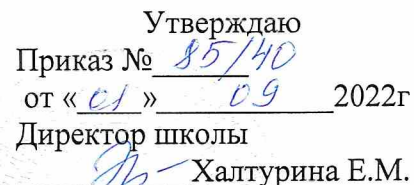 Утверждаю
Приказ № 85/40
от «01» 09 2022г
Директор школы
Халтурина Е.М.